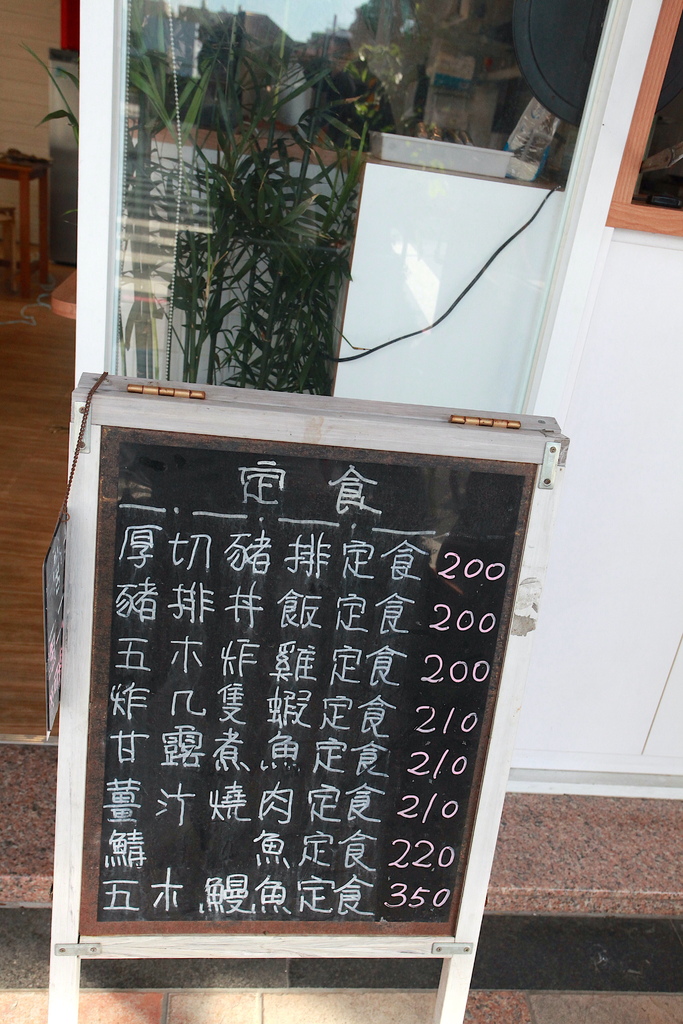 定食
厚切豬排定食 200
豬排丼飯定食 200
五木炸雞定食 200
炸几隻蝦定食 210
甘露煮魚定食 210
薑汁燒肉定食 210
鯖魚定食 220
五木鰻魚定食 350